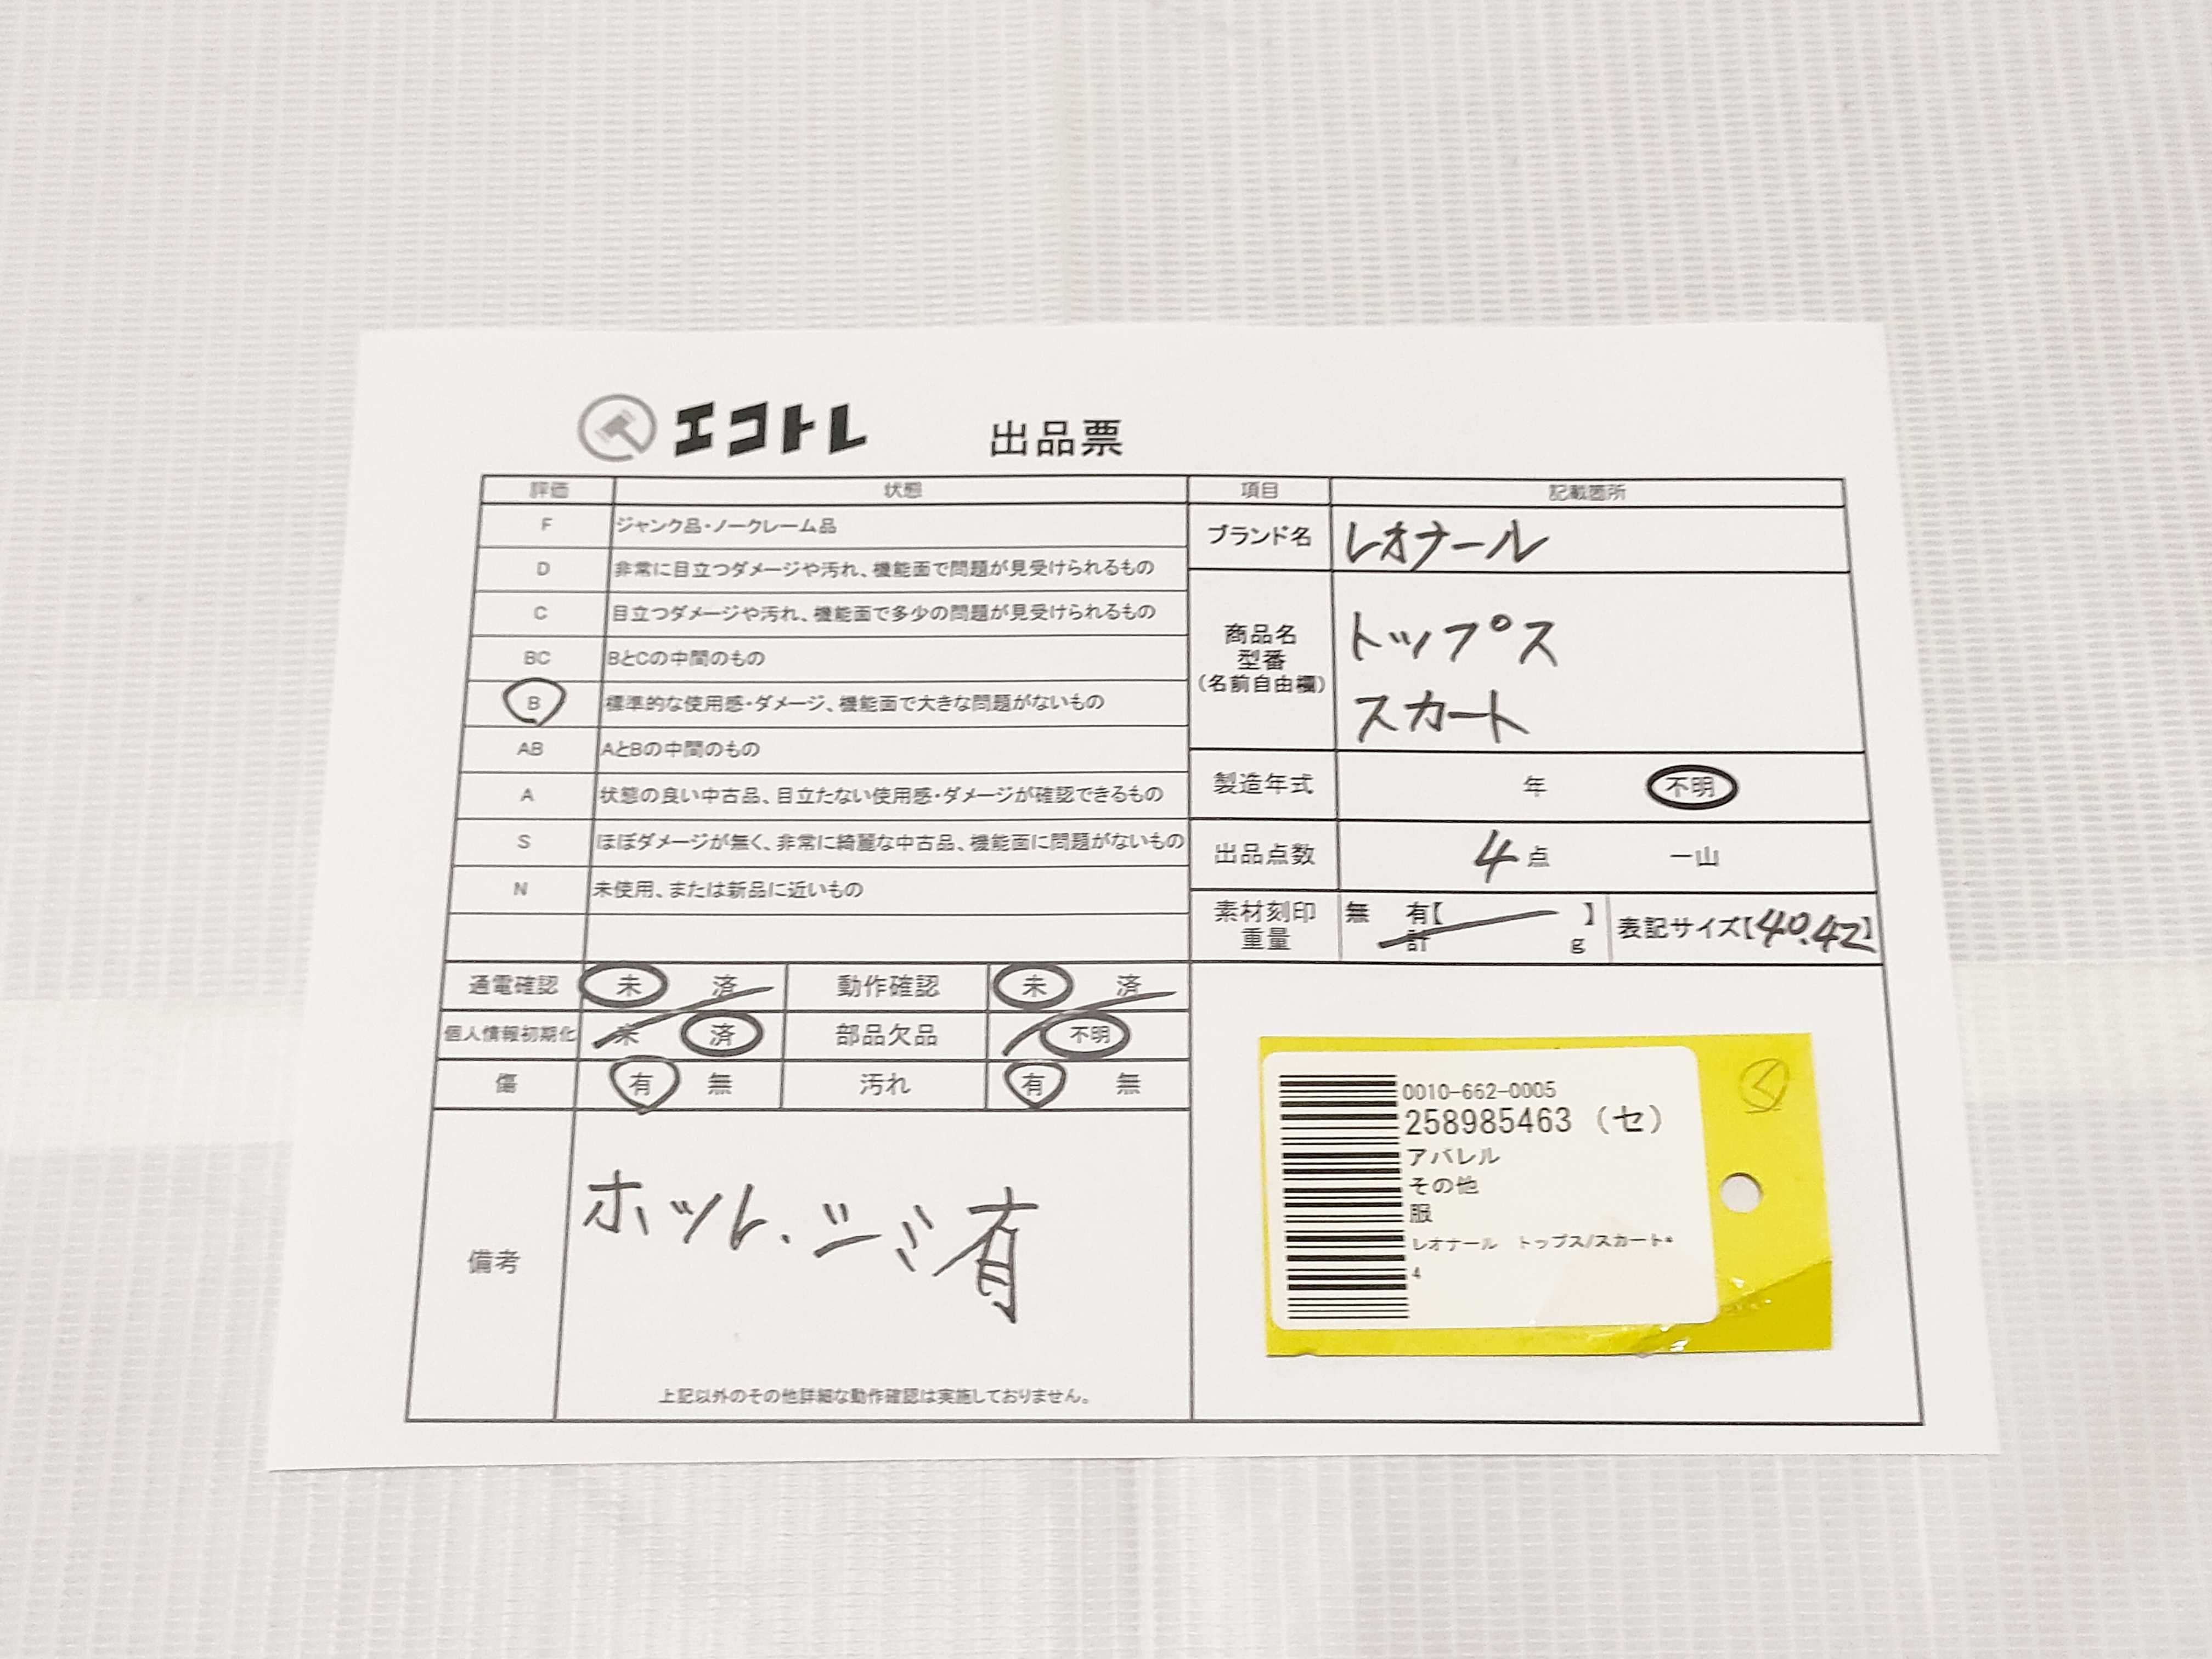 エコトレ 出品票
評価 状態
F ジャンク品・ノークレーム品
D 非常に目立つダメージや汚れ、機能面で問題が見受けられるもの
C 目立つダメージや汚れ、機能面で多少の問題が見受けられるもの
BC BとCの中間のもの
B 標準的な使用感・ダメージ、機能面で大きな問題がないもの
AB AとBの中間のもの
A 状態の良い中古品、目立たない使用感・ダメージが確認できるもの
S ほぼダメージが無く、非常に綺麗な中古品、機能面に問題がないもの
N 未使用、または新品に近いもの
通電確認 未 済 動作確認 未 済
個人情報初期化 未 済 部品欠品 不明
傷 有 無 汚れ 有 無
備考
ホツレ、シミ有
上記以外のその他詳細な動作確認は実施しておりません。
項目 記載箇所
ブランド名 レオナール
商品名
型番
(名前自由欄)
トップス
スカート
製造年式 年 不明
出品点数 4点 一山
素材刻印
重量
無 有【 】
計 g
表記サイズ【40.42】
0010-662-0005
258985463 (セ)
アパレル
その他
服
レオナール トップス/スカート*
4